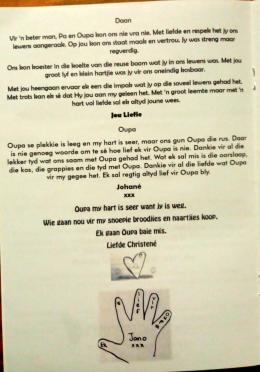 Daan
Vir 'n beter man, Pa en Oupa kon ons nie vra nie. Met liefde en respek het jy ons
lewens aangeraak. Op jou kon ons staat maak en vertrou. Jy was streng maar
regverdig.
Ons kon koester in die koelte van die reuse boom wat jy in ons lewens was. Met jou
groot lyf en klein hartjie was jy vir ons oneindig kosbaar.
Met jou heengaan ervaar ek een die impak wat jy op die soveel lewens gehad het.
Met trots kan ek sê dat Hy jou aan my geleen het. Met 'n groot leemte maar met 'n
hart vol liefde sal ek altyd joune wees.
Jou Liefie
Oupa
Oupa se plekkie is leeg en my hart is seer, maar ons gun Oupa die rus. Daar
is nie genoeg woorde om te sê hoe lief ek vir Oupa is nie. Dankie vir al die
lekker tyd wat ons saam met Oupa gehad het. Wat ek sal mis is die oorslaap,
die kos, die grappies en die tyd met Oupa. Dankie vir al die liefde wat Oupa
vir my gegee het. Ek sal regtig altyd lief vir Oupa bly.
Johané
xxx
Oupa my hart is seer want jy is weg.
Wie gaan nou vir my snoepie broodjies en naartjies koop.
Ek gaan Oupa baie mis.
Liefde Christené
Ek
is
lief
vir
Oupa
Jano
xxx